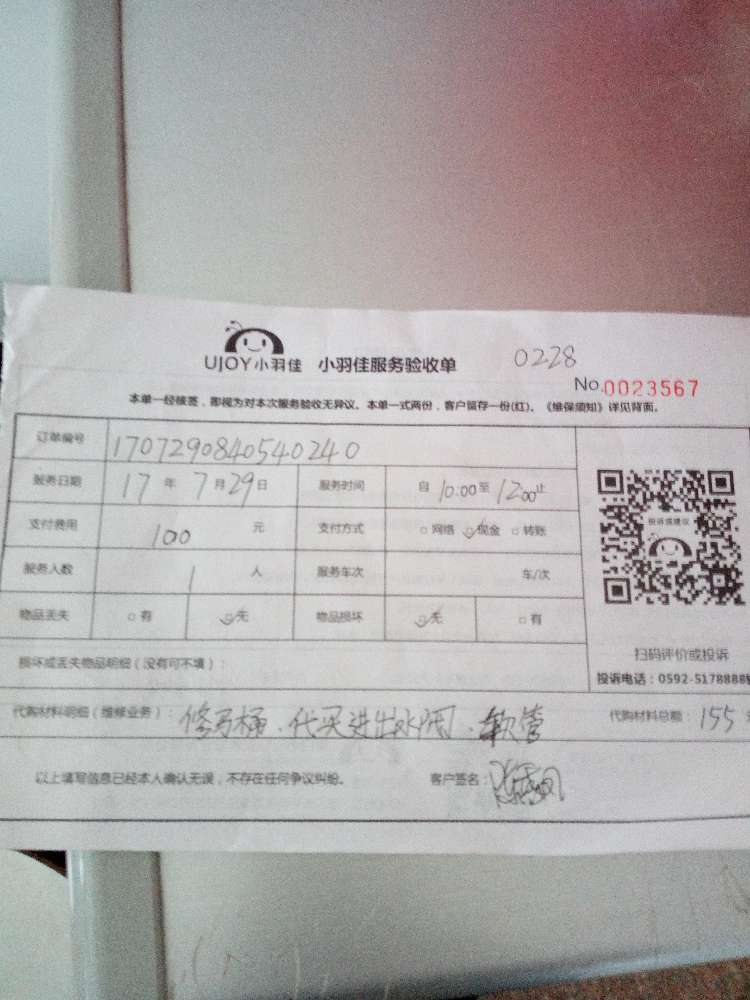 UJOY小羽佳 小羽佳服务验收单 0228
No.0023567
本单一经核签，即视为对本次服务验收无异议。本单一式两份，客户留存一份(红)。《维保须知》详见背面。
订单编号 170729084054 0240
服务日期 17 年 7 月 29 日 服务时间 自 10:00 至 12:00 止
支付费用 100 元 支付方式 网络 现金 转账
服务人数 1 人 服务车次 车/次
物品丢失 有 无 物品损坏 无 有
投诉或建议
扫码评价或投诉
投诉电话：0592-5178888转
损坏或丢失物品明细（没有可不填）：
代购材料明细（维修业务）：修马桶、代买进出水阀、软管 代购材料总额：155
以上填写信息已经本人确认无误，不存在任何争议纠纷。 客户签名：